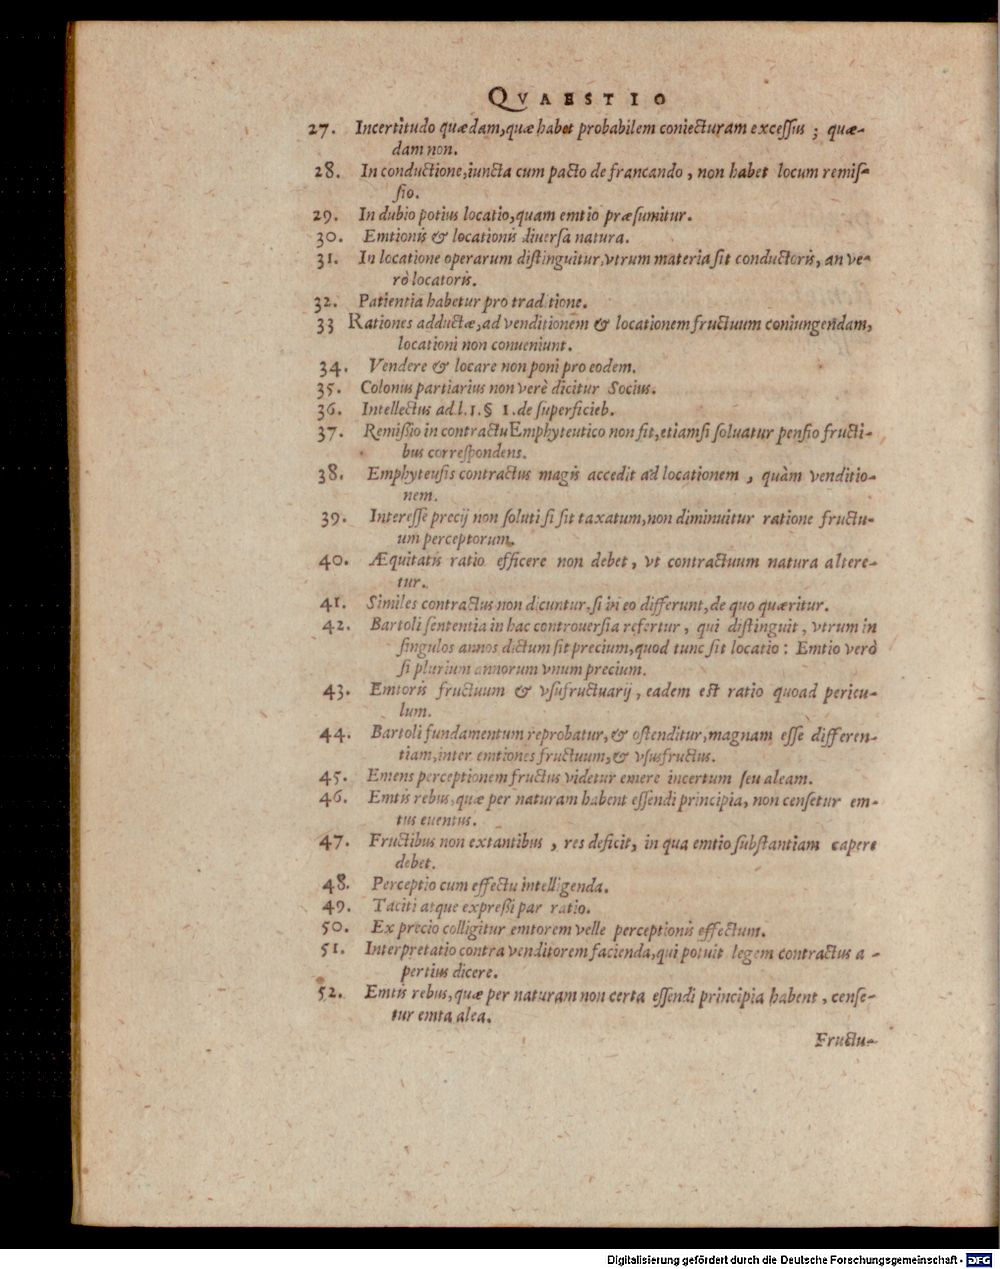 QVAESTIO
27. Incertitudo quædam, quæ habet probabilem coniecturam excessus ; quæ-
dam non.
28. In conductione, iuncta cum pacto de francando , non habet locum remis-
sio.
29. In dubio potius locatio, quam emtio præsumitur.
30. Emtionis & locationis diuersa natura.
31. In locatione operarum distinguitur, vtrum materia sit conductoris, an ve-
rò locatoris.
32. Patientia habetur pro traditione.
33 Rationes adductæ, ad venditionem & locationem fructuum coniungendam,
locationi non conueniunt.
34. Vendere & locare non poni pro eodem.
35. Colonus partiarius non verè dicitur Socius.
36. Intellectus ad l. 1. § 1. de superficieb.
37. Remissio in contractu Emphyteutico non fit, etiamsi soluatur pensio fructi-
bus correspondens.
38. Emphyteusis contractus magis accedit ad locationem , quàm venditio-
nem.
39. Interesse precij non soluti si sit taxatum, non diminuitur ratione fructu-
um perceptorum.
40. Æquitatis ratio efficere non debet, vt contractuum natura altere-
tur.
41. Similes contractus non dicuntur, si in eo differunt, de quo quæritur.
42. Bartoli sententia in hac controuersia refertur , qui distinguit , vtrum in
singulos annos dictum sit precium, quod tunc sit locatio : Emtio verò
si plurium annorum vnum precium.
43. Emtoris fructuum & vsufructuarij , eadem est ratio quoad pericu-
lum.
44. Bartoli fundamentum reprobatur, & ostenditur, magnam esse differen-
tiam, inter emtiones fructuum, & vsusfructus.
45. Emens perceptionem fructus videtur emere incertum seu aleam.
46. Emtis rebus, quæ per naturam habent essendi principia, non censetur em-
tus euentus.
47. Fructibus non extantibus , res deficit, in qua emtio substantiam capere
debet.
48. Perceptio cum effectu intelligenda.
49. Taciti atque expressi par ratio.
50. Ex precio colligitur emtorem velle perceptionis effectum.
51. Interpretatio contra venditorem facienda, qui potuit legem contractus a-
pertius dicere.
52. Emtis rebus, quæ per naturam non certa essendi principia habent , cense-
tur emta alea.
Fructu-
Digitalisierung gefördert durch die Deutsche Forschungsgemeinschaft - DFG